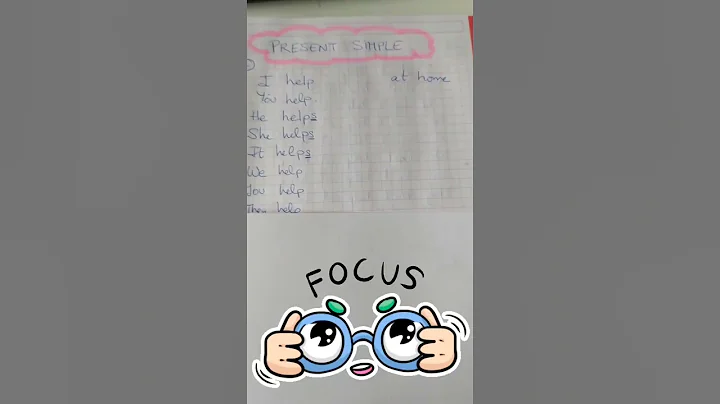 PRESENT SIMPLE
I help at home
You help.
He helps
She helps
It helps
We help
You help
They help
FOCUS